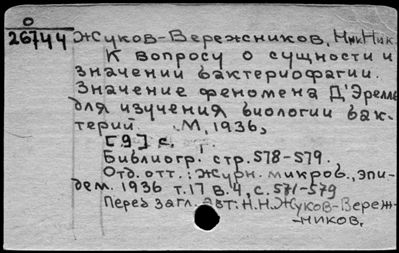 О
26744 Жуков-Вережников, Ник. Ник.
К вопросу о сущности и
значении бактериофагии.
Значение феномена Д'Эрелля
для изучения биологии бак-
терий. М, 1936,
[9] с.
Библиогр. стр. 578-579.
Отд. отт.: Журн. микроб., эпи-
дем. 1936 т.17 в.4, с. 571-579
Перед загл. авт: Н.Н.Жуков-Вереж-
-ников.